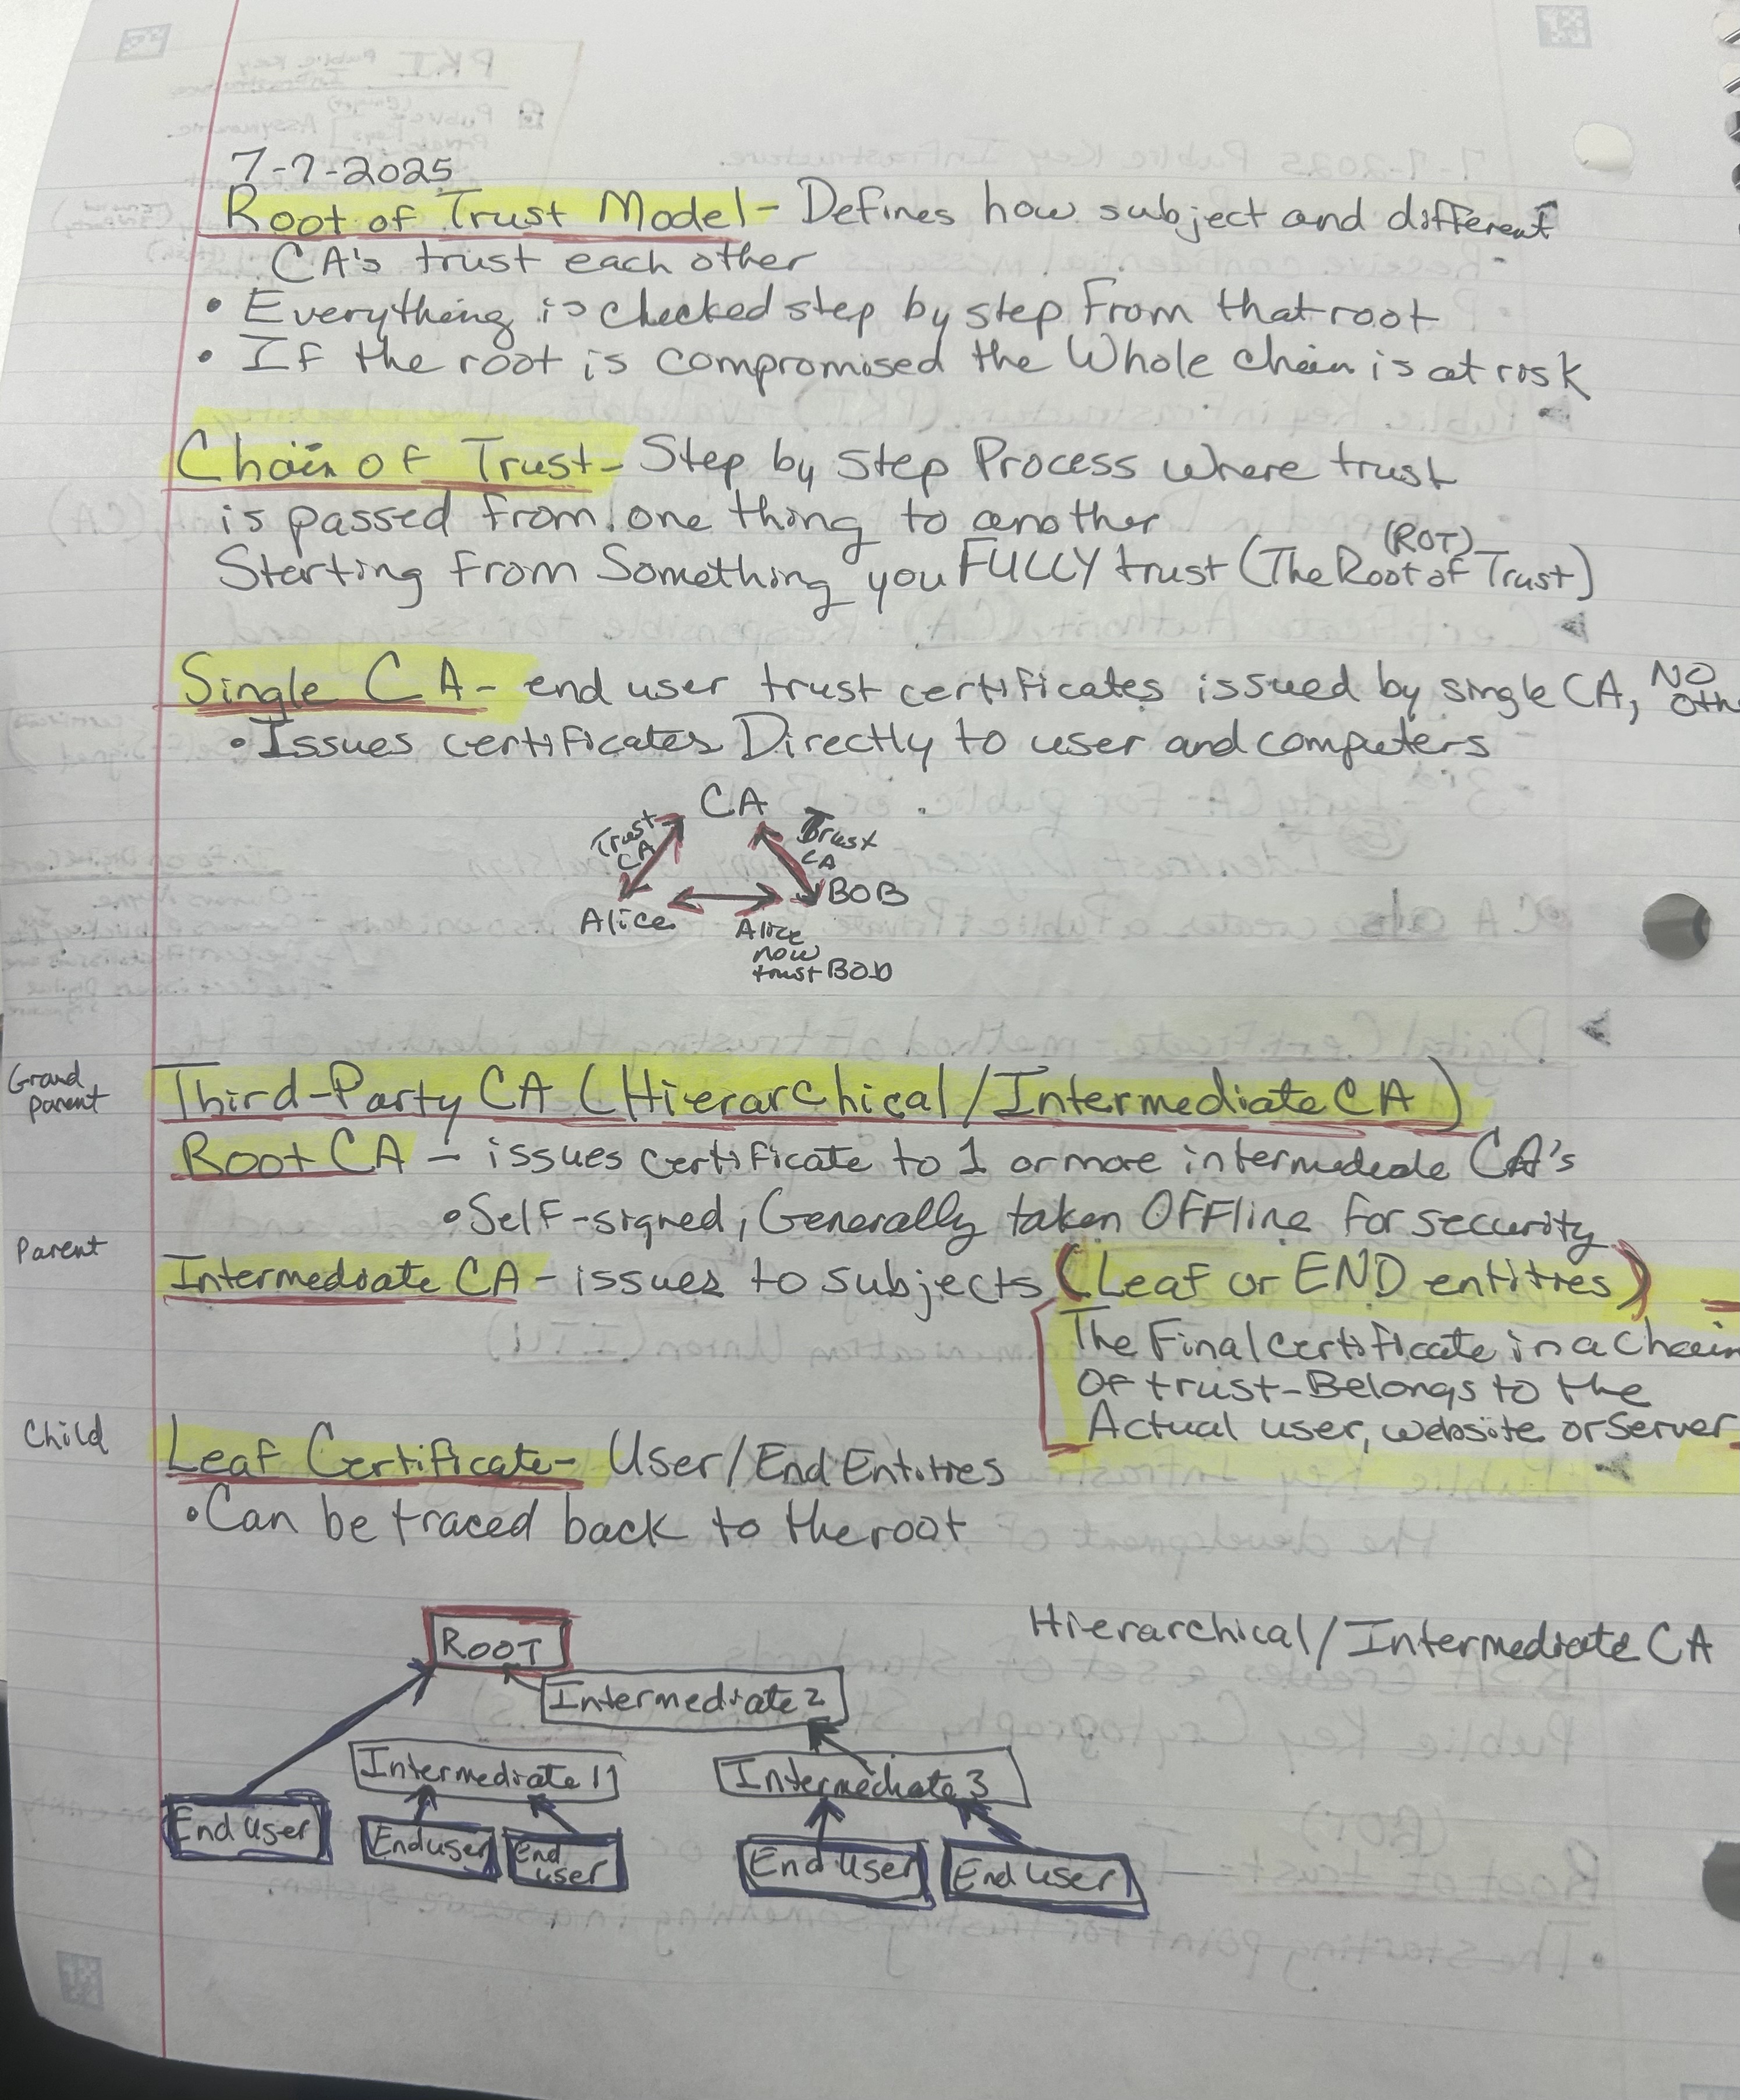 7-7-2025
Root of Trust Model - Defines how subject and different
CA's trust each other
• Everything is checked step by step From that root
• If the root is compromised the Whole chain is at risk
Chain of Trust - Step by Step Process where trust
is passed from one thing to another
(ROT)
Starting from Something you FULLY trust (The Root of Trust)
Single CA - end user trust certificates issued by single CA, NO
Oth
• Issues certificates Directly to user and computers
CA
Trust
CA
Trust
CA
Alice
BOB
Alice
now
trust BOB
Grand
parent
Third-Party CA (Hierarchical/Intermediate CA)
Root CA - issues certificate to 1 or more intermedeate CA's
• Self-signed, Generally taken OFFline for security
Parent
Intermediate CA - issues to subjects (Leaf or END entities)
The Final certificate in a Chain
Of trust - Belongs to the
Actual user, website or server
Child
Leaf Certificate - User/End Entities
• Can be traced back to the root
Hierarchical/Intermediate CA
ROOT
Intermediate 2
Intermediate 1
Intermediate 3
End User
End user
End user
End User
End User